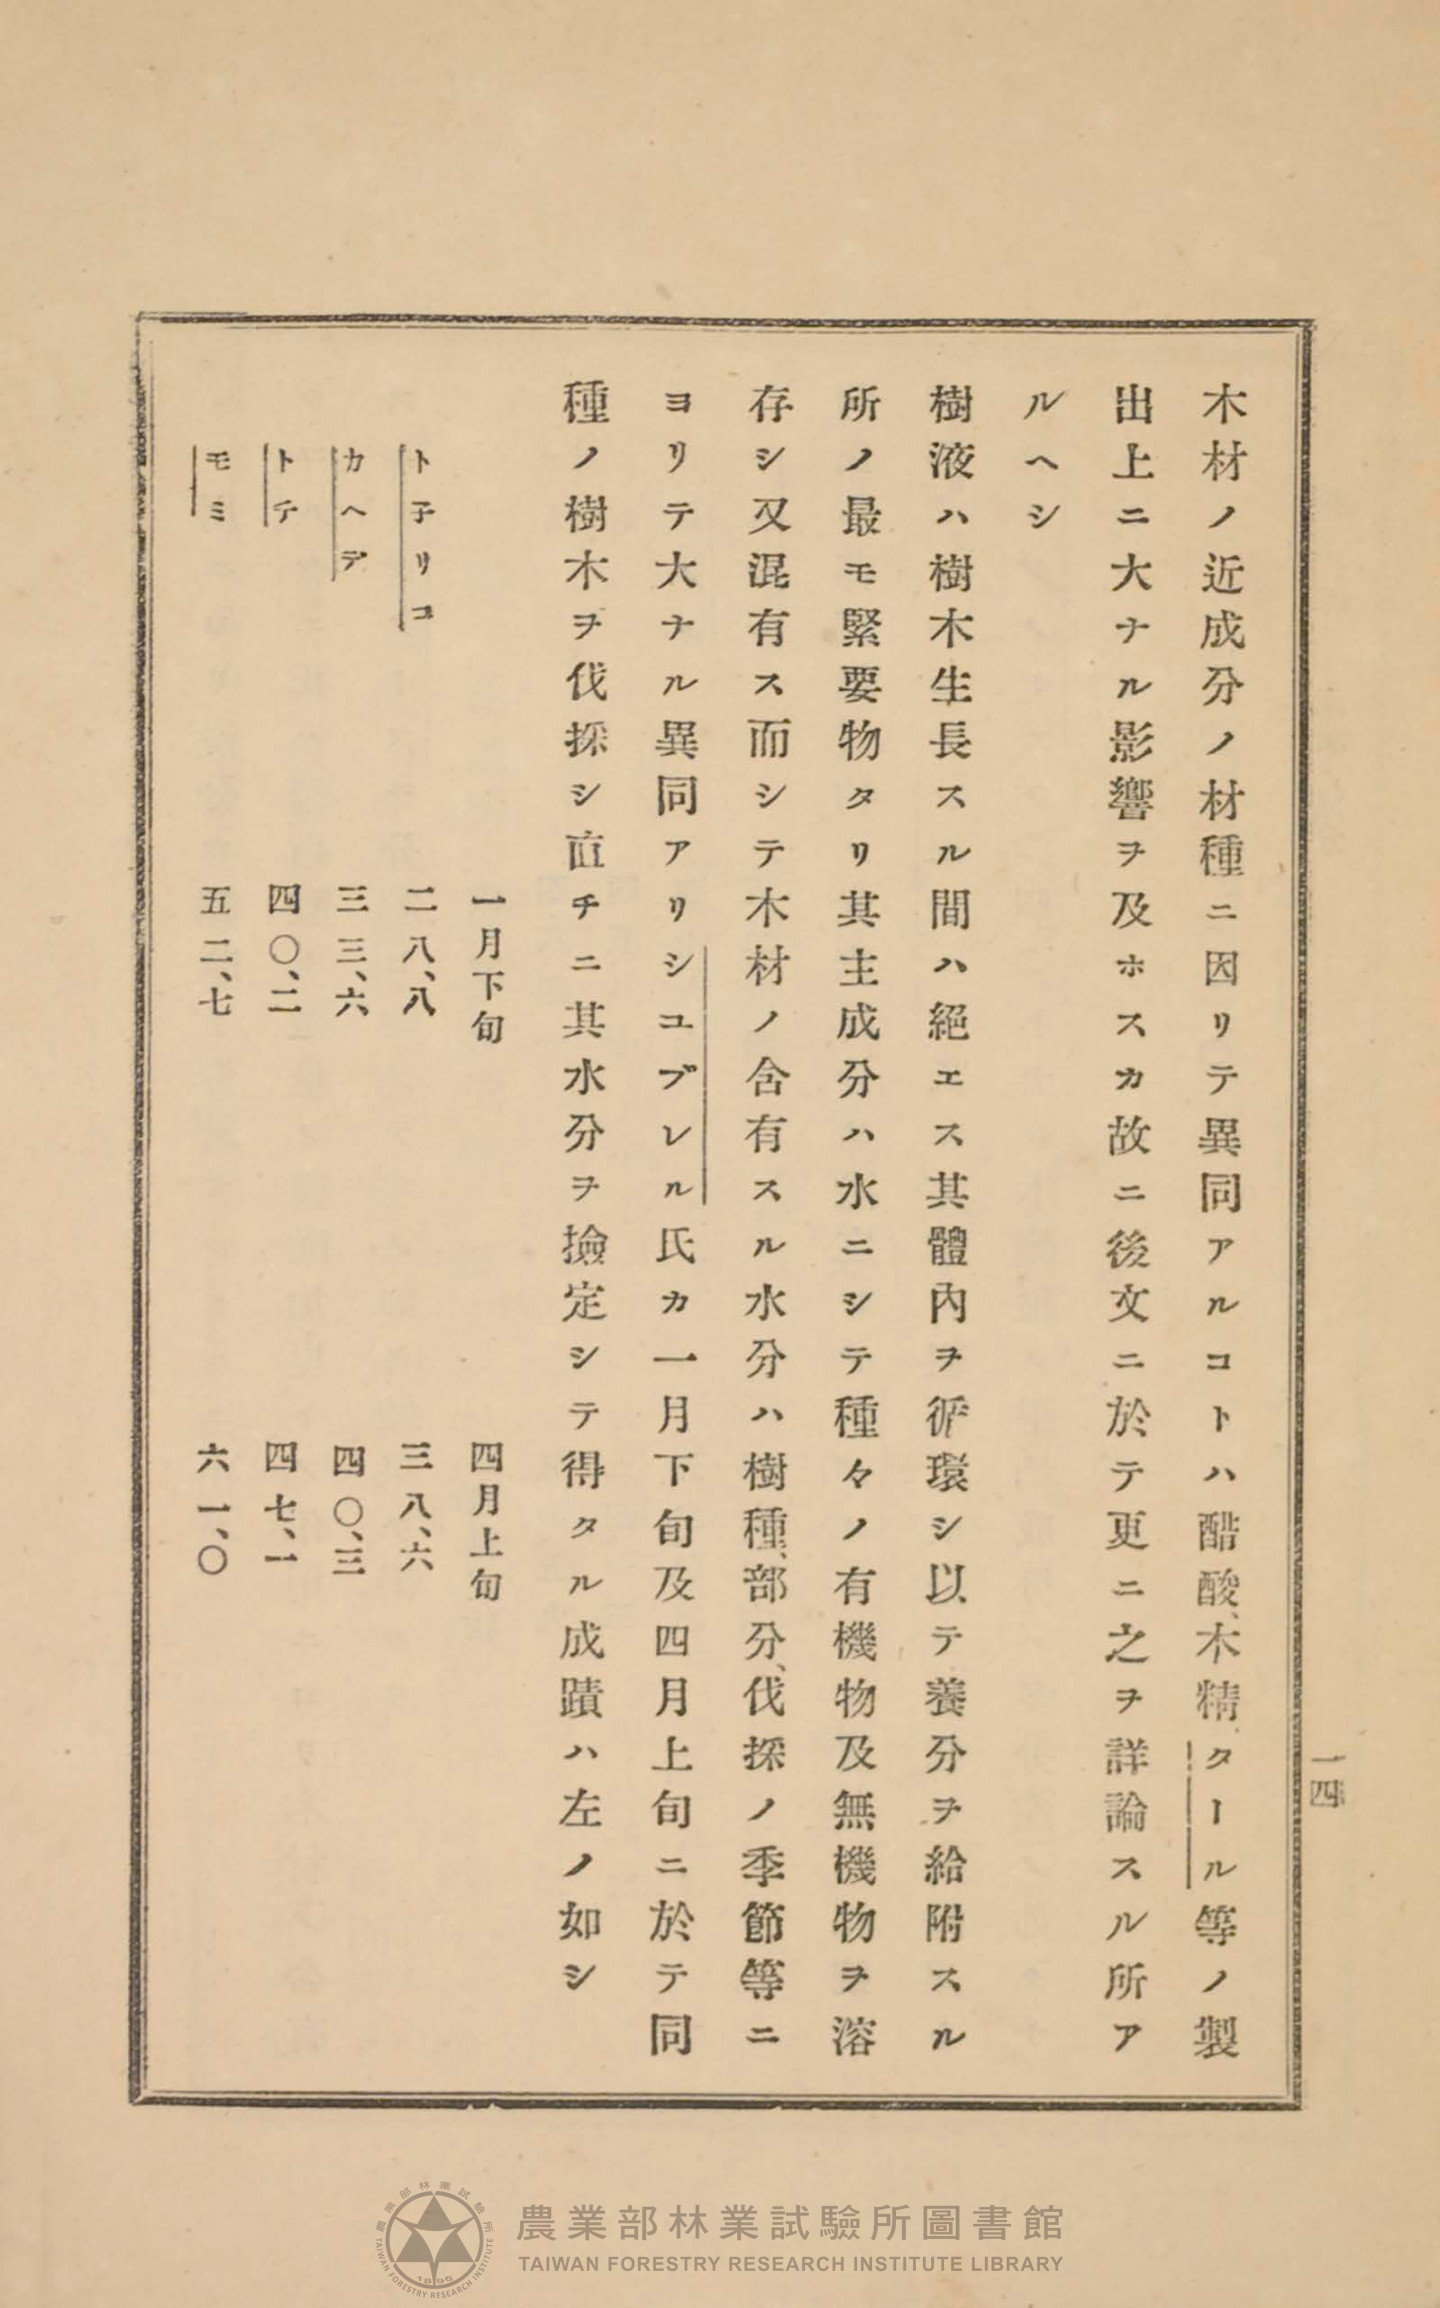 一四
木材ノ近成分ノ材種ニ因リテ異同アルコトハ醋酸、木精、タール等ノ製
出上ニ大ナル影響ヲ及ホスカ故ニ後文ニ於テ更ニ之ヲ詳論スル所ア
ルヘシ
樹液ハ樹木生長スル間ハ絕エス其體內ヲ循環シ以テ養分ヲ給附スル
所ノ最モ緊要物タリ其主成分ハ水ニシテ種々ノ有機物及無機物ヲ溶
存シ又混有ス而シテ木材ノ含有スル水分ハ樹種、部分、伐採ノ季節等ニ
ヨリテ大ナル異同アリシユブレル氏カ一月下旬及四月上旬ニ於テ同
種ノ樹木ヲ伐採シ直チニ其水分ヲ撿定シテ得タル成蹟ハ左ノ如シ
一月下旬 四月上旬
ト子リコ 二八、八 三八、六
カヘデ 三三、六 四〇、三
トチ 四〇、二 四七、一
モミ 五二、七 六一、〇
農業部林業試驗所圖書館
TAIWAN FORESTRY RESEARCH INSTITUTE LIBRARY
農業部林業試驗所
TAIWAN FORESTRY RESEARCH INSTITUTE
1896